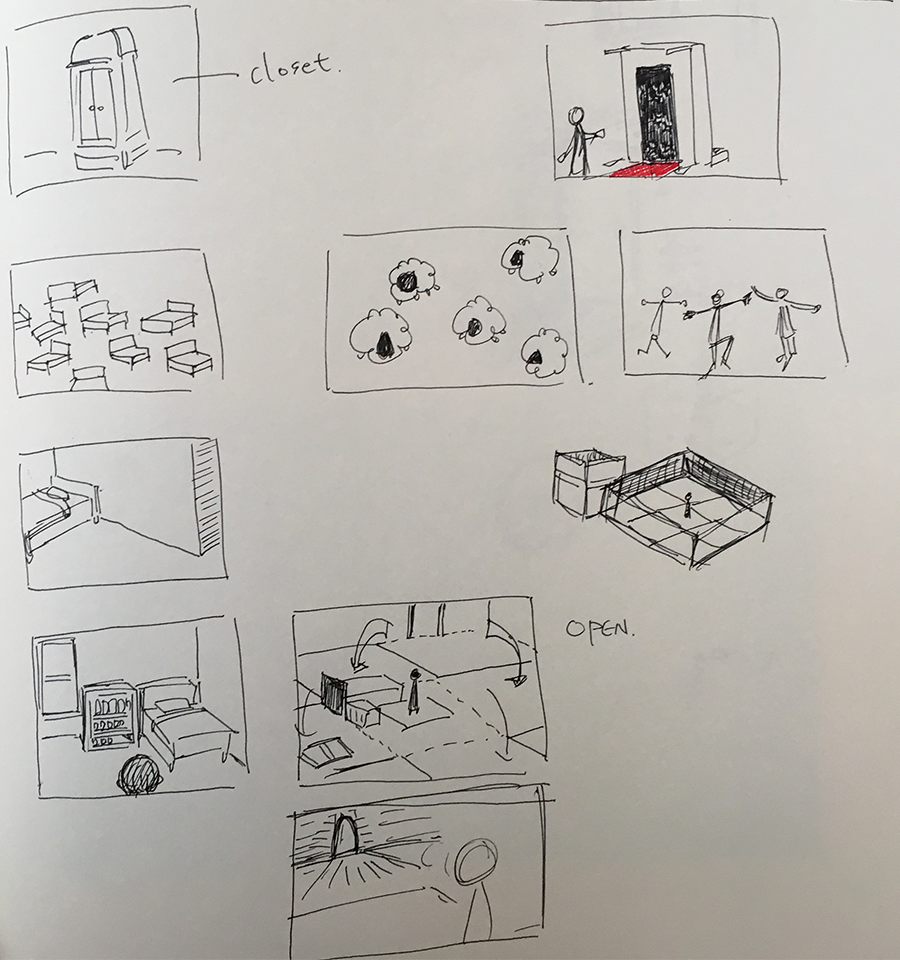 closet.
OPEN.